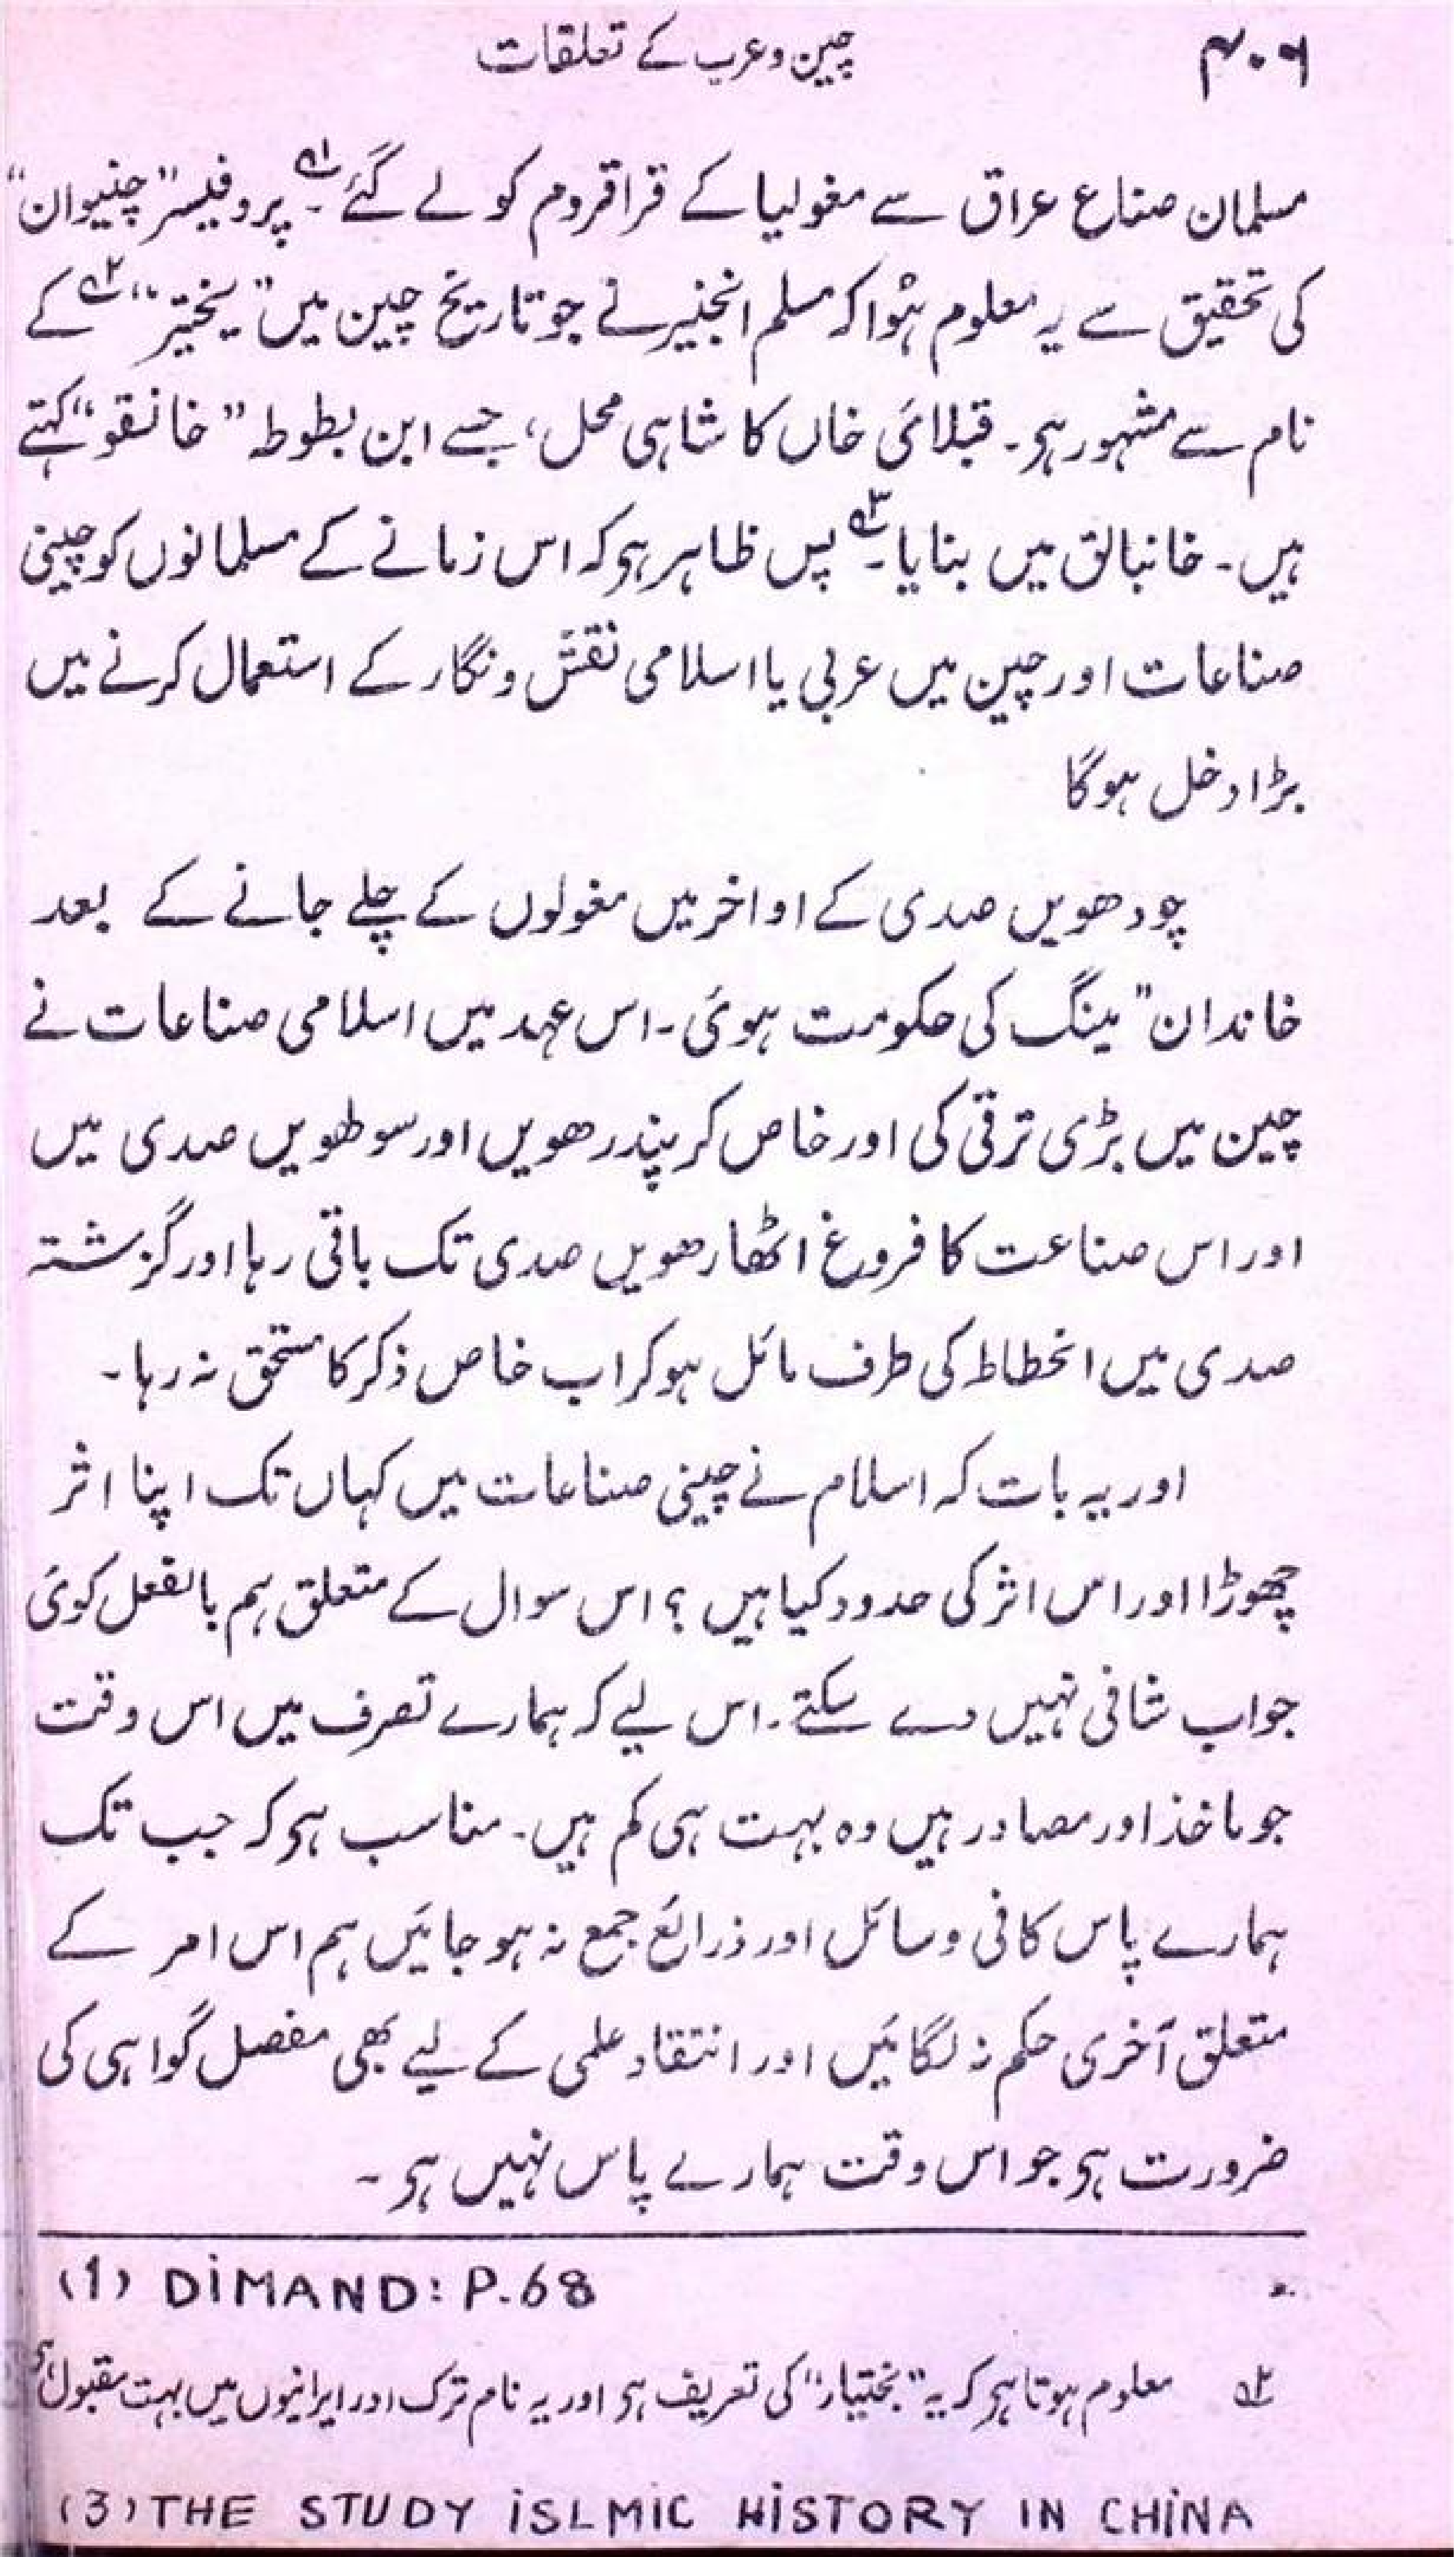 ۴۰۶ چین و عرب کے تعلقات
مسلمان صناع عراق سے مغولیا کے قراقروم کو لے گئے۔ ؁۱ پروفیسر "چنیوان"
کی تحقیق سے یہ معلوم ہؤا کہ مسلم انجنیر نے جو تاریخ چین میں "یختیر" ؁۲ کے
نام سے مشہور ہو۔ قبلائی خاں کا شاہی محل، جسے ابن بطوطہ "خانقو" کہتے
ہیں۔ خانبالق میں بنایا۔ ؁۳ پس ظاہر ہو کہ اس زمانے کے مسلمانوں کو چینی
صناعات اور چین میں عربی یا اسلامی نقش و نگار کے استعمال کرنے میں
بڑا دخل ہوگا
چودھویں صدی کے اواخر میں مغولوں کے چلے جانے کے بعد
خاندان "مینگ کی حکومت ہوئی۔ اس عہد میں اسلامی صناعات نے
چین میں بڑی ترقی کی اور خاص کر پندرھویں اور سولھویں صدی میں
اور اس صناعت کا فروغ اٹھارھویں صدی تک باقی رہا اور گزشتہ
صدی میں انحطاط کی طرف مائل ہوکر اب خاص ذکر کا مستحق نہ رہا۔
اور یہ بات کہ اسلام نے چینی صناعات میں کہاں تک اپنا اثر
چھوڑا اور اس اثر کی حدود کیا ہیں ؟ اس سوال کے متعلق ہم بالفعل کوئی
جواب شافی نہیں دے سکتے۔ اس لیے کہ ہمارے تصرف میں اس وقت
جو ماخذ اور مصادر ہیں وہ بہت ہی کم ہیں۔ مناسب ہو کہ جب تک
ہمارے پاس کافی وسائل اور ذرائع جمع نہ ہو جائیں ہم اس امر کے
متعلق آخری حکم نہ لگائیں اور انتقاد علمی کے لیے بھی مفصل گواہی کی
ضرورت ہو جو اس وقت ہمارے پاس نہیں ہو۔
(1) DIMAND: P.68
؁۲ معلوم ہوتا ہو کہ یہ "بختیار" کی تعریف ہو اور یہ نام ترک اور ایرانیوں میں بہت مقبول ہو
(3) THE STUDY ISLMIC HISTORY IN CHINA